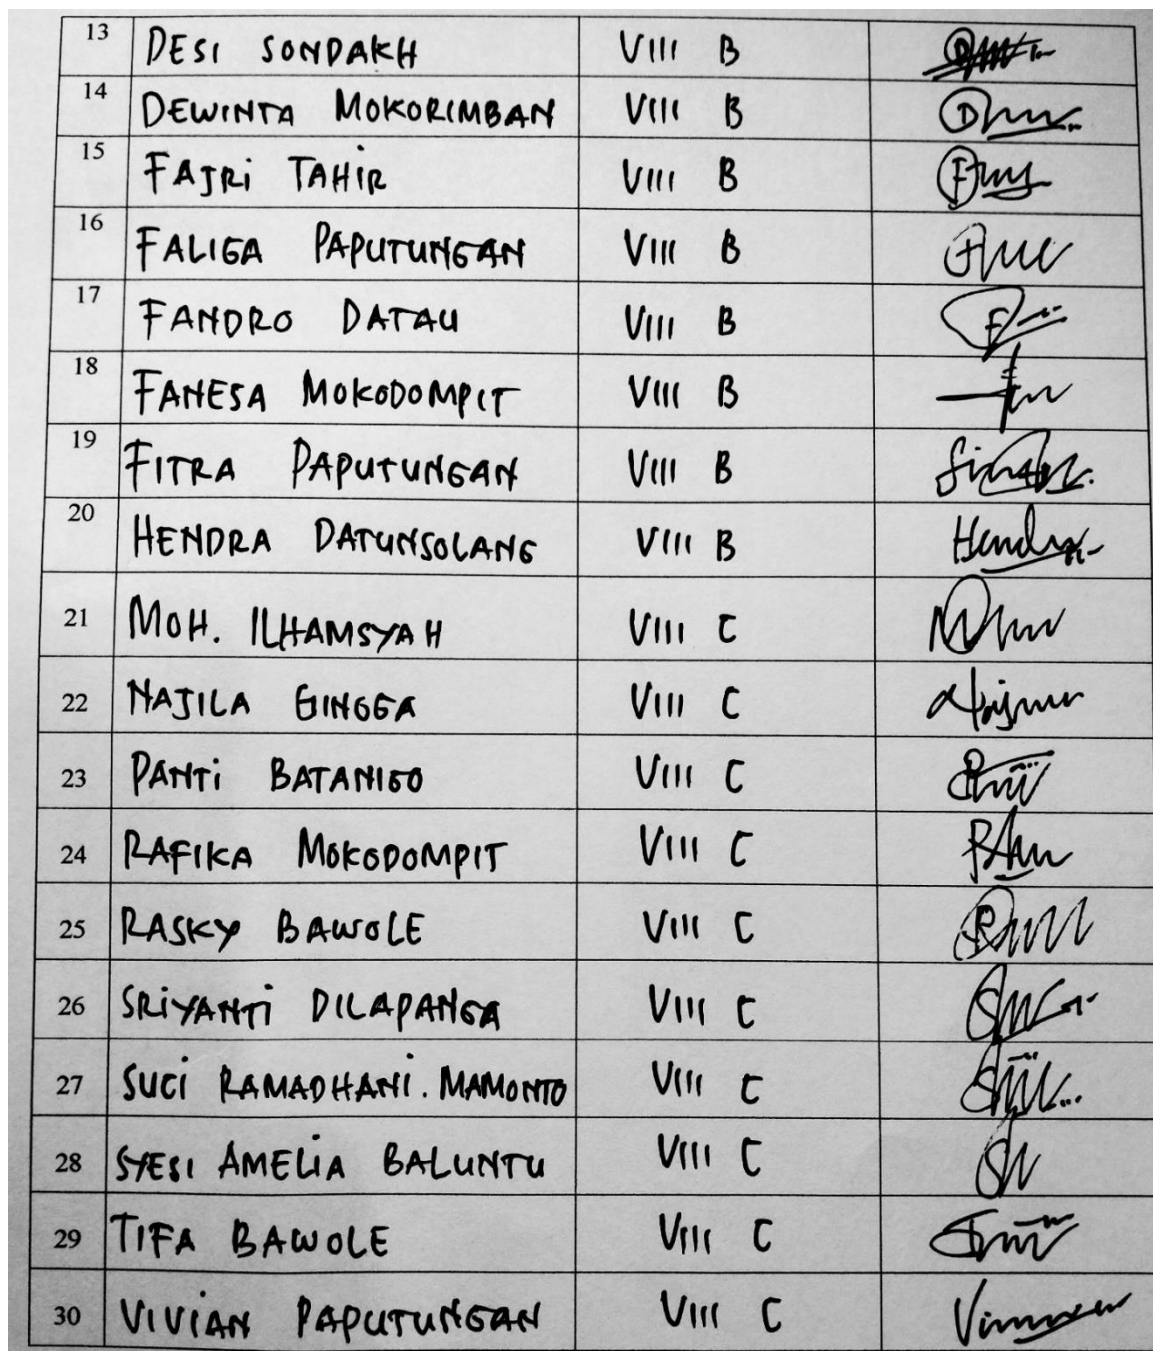 13 DESI SONDAKH VIII B
14 DEWINTA MOKORIMBAN VIII B
15 FAJRi TAHIR VIII B
16 FALIGA PAPUTUNGAN VIII B
17 FANDRO DATAU VIII B
18 FANESA MOKODOMPIT VIII B
19 FITRA PAPUTUNGAN VIII B
20 HENDRA DATUNSOLANG VIII B Hendra
21 MOH. ILHAMSYAH VIII C
22 NAJILA GINGGA VIII C
23 PANTi BATANIGO VIII C
24 RAFIKA MOKODOMPIT VIII C
25 RASKY BAWOLE VIII C
26 SRiYANTi DILAPANGA VIII C
27 SUCi RAMADHANi. MAMONTO VIII C
28 SYESI AMELiA BALUNTU VIII C
29 TIFA BAWOLE VIII C
30 VIVIAN PAPUTUNGAN VIII C